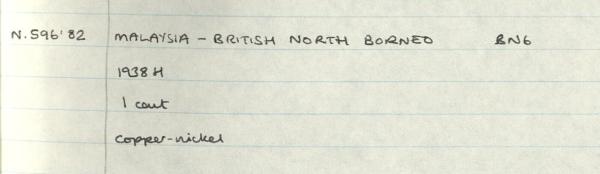 N.596'82 MALAYSIA - BRITISH NORTH BORNEO BN6
1938 H
1 cent
copper-nickel